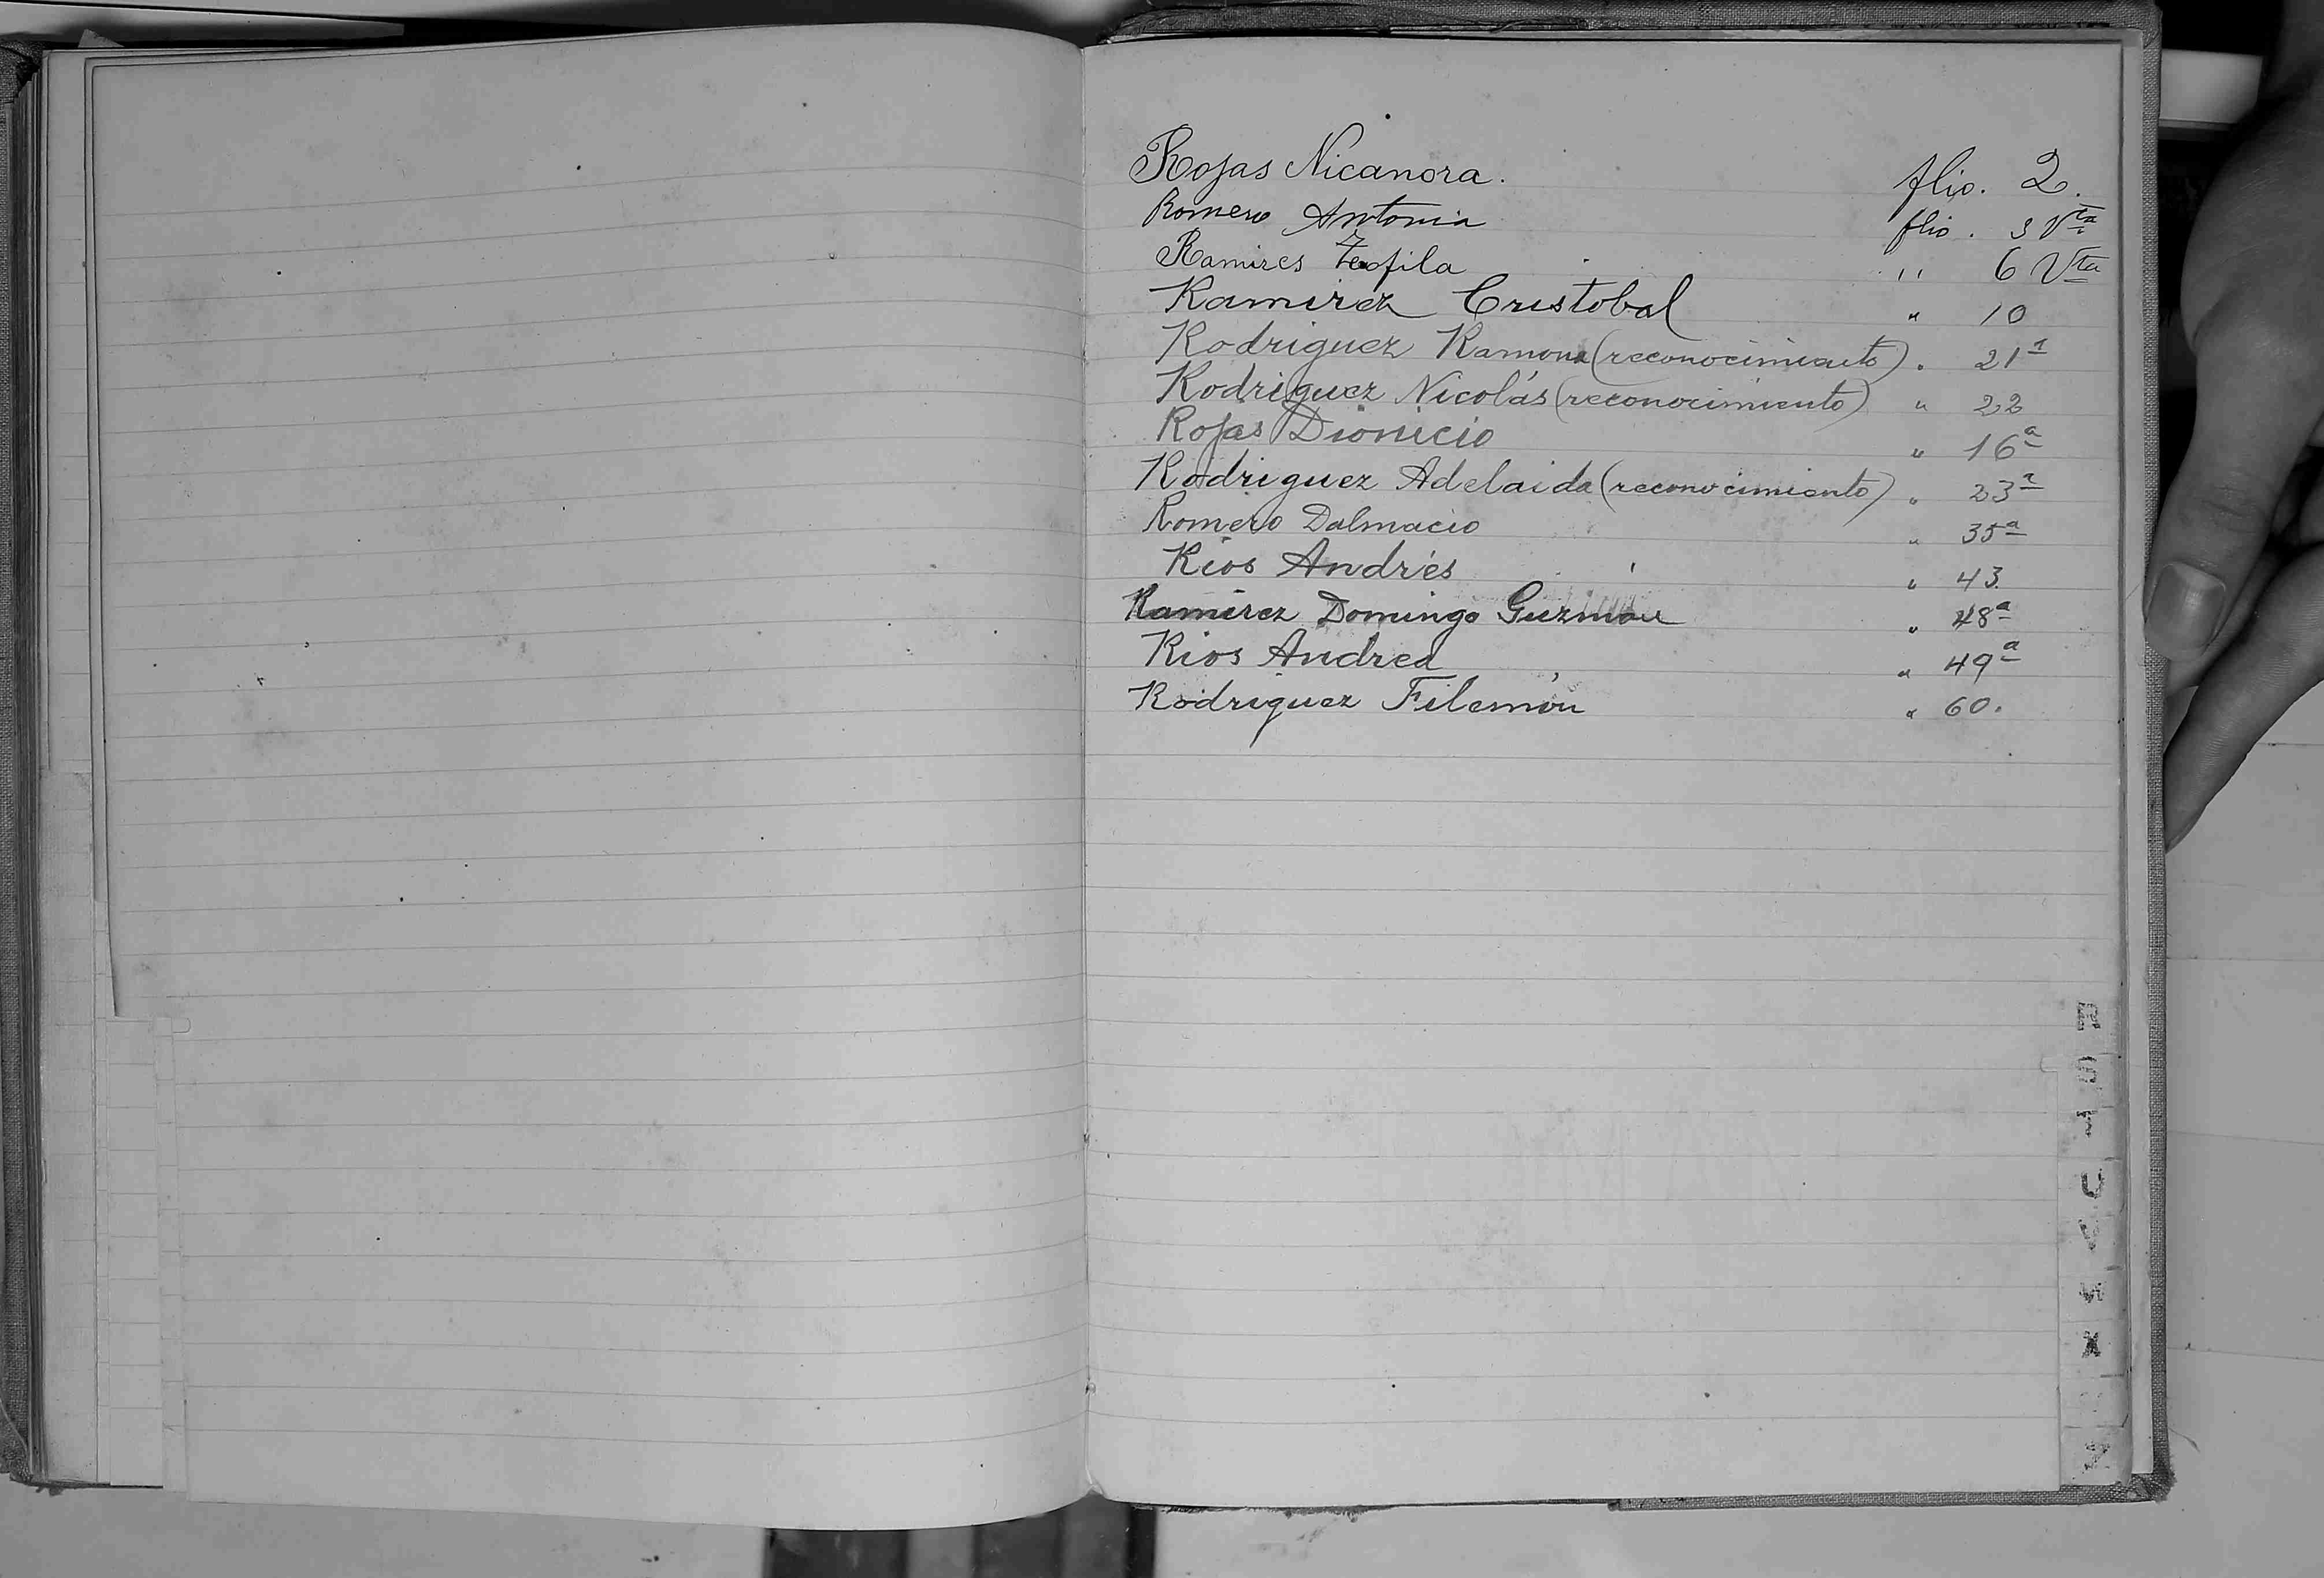 Rojas Nicanora. flio. 2.
Romero Antonia flio. 3 Vta
Ramires Teofila " 6 Vta
Ramirez Cristobal " 10
Rodriguez Ramona (reconocimiento) " 21ª
Rodriguez Nicolás (reconocimiento) " 22
Rojas Dionicio " 16ª
Rodriguez Adelaida (reconocimiento) " 23ª
Romero Dalmacio " 35ª
Rios Andrés " 43.
Ramirez Domingo Guzman " 48ª
Rios Andrea " 49ª
Rodriguez Filemón " 60.
R
S
T
U
V
W
X
Z